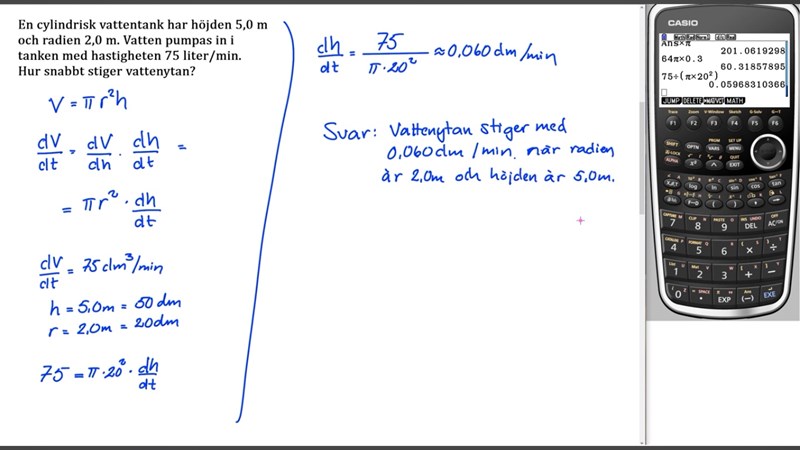 En cylindrisk vattentank har höjden 5,0 m
och radien 2,0 m. Vatten pumpas in i
tanken med hastigheten 75 liter/min.
Hur snabbt stiger vattenytan?
V = πr²h
dV/dt = dV/dh · dh/dt =
= πr² · dh/dt
dV/dt = 75 dm³/min
h = 5,0m = 50 dm
r = 2,0m = 20dm
75 = π·20² · dh/dt
dh/dt = 75/π·20² ≈ 0,060 dm/min
Svar: Vattenytan stiger med
0,060 dm / min. när radien
är 2,0m och höjden är 5,0m.
CASIO
Ans×π
201.0619298
64π×0.3
60.31857895
75÷(π×20²)
0.05968310366
JUMP DELETE ▸MAT/VCT MATH
F1 F2 F3 F4 F5 F6
SHIFT OPTN VARS MENU
ALPHA x² ^ QUIT EXIT
X,θ,T log ln sin cos tan
7 8 9 DEL AC/ON
4 5 6 × ÷
1 2 3 + −
0 . EXP (−) EXE